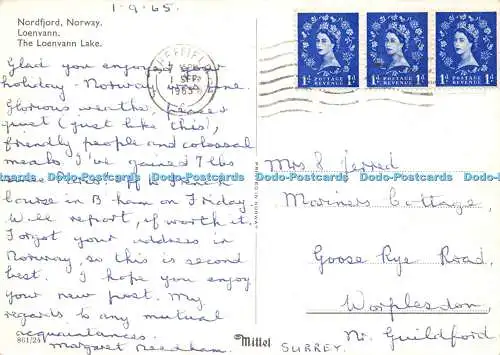 1-9-65.
Nordfjord, Norway.
Loenvann.
The Loenvann Lake.
Glad you enjoyed your
holiday - Norway
Glorious weather, peace
quiet (just like this),
friendly people and colossal
meals I've gained 7 lbs
Off to French
course in B-ham on Friday.
Will report, if worth it.
Forgot your address in
Norway, so this is second
best. I hope you enjoy
your new post. My
regards to any mutual
acquaintances.
861/24 Margaret Needham.
SHEFFIELD
1 SEP
1965
1D POSTAGE REVENUE 1D
1D POSTAGE REVENUE 1D
1D POSTAGE REVENUE 1D
Mrs J Jerred
Mariners Cottage,
Goose Rye Road,
Worplesdon,
Nr. Guildford
SURREY.
Mittet
Dodo-Postcards Dodo-Postcards Dodo-Postcards Dodo-Postcards
Dodo-Postcards Dodo-Postcards Dodo-Postcards Dodo-Postcards